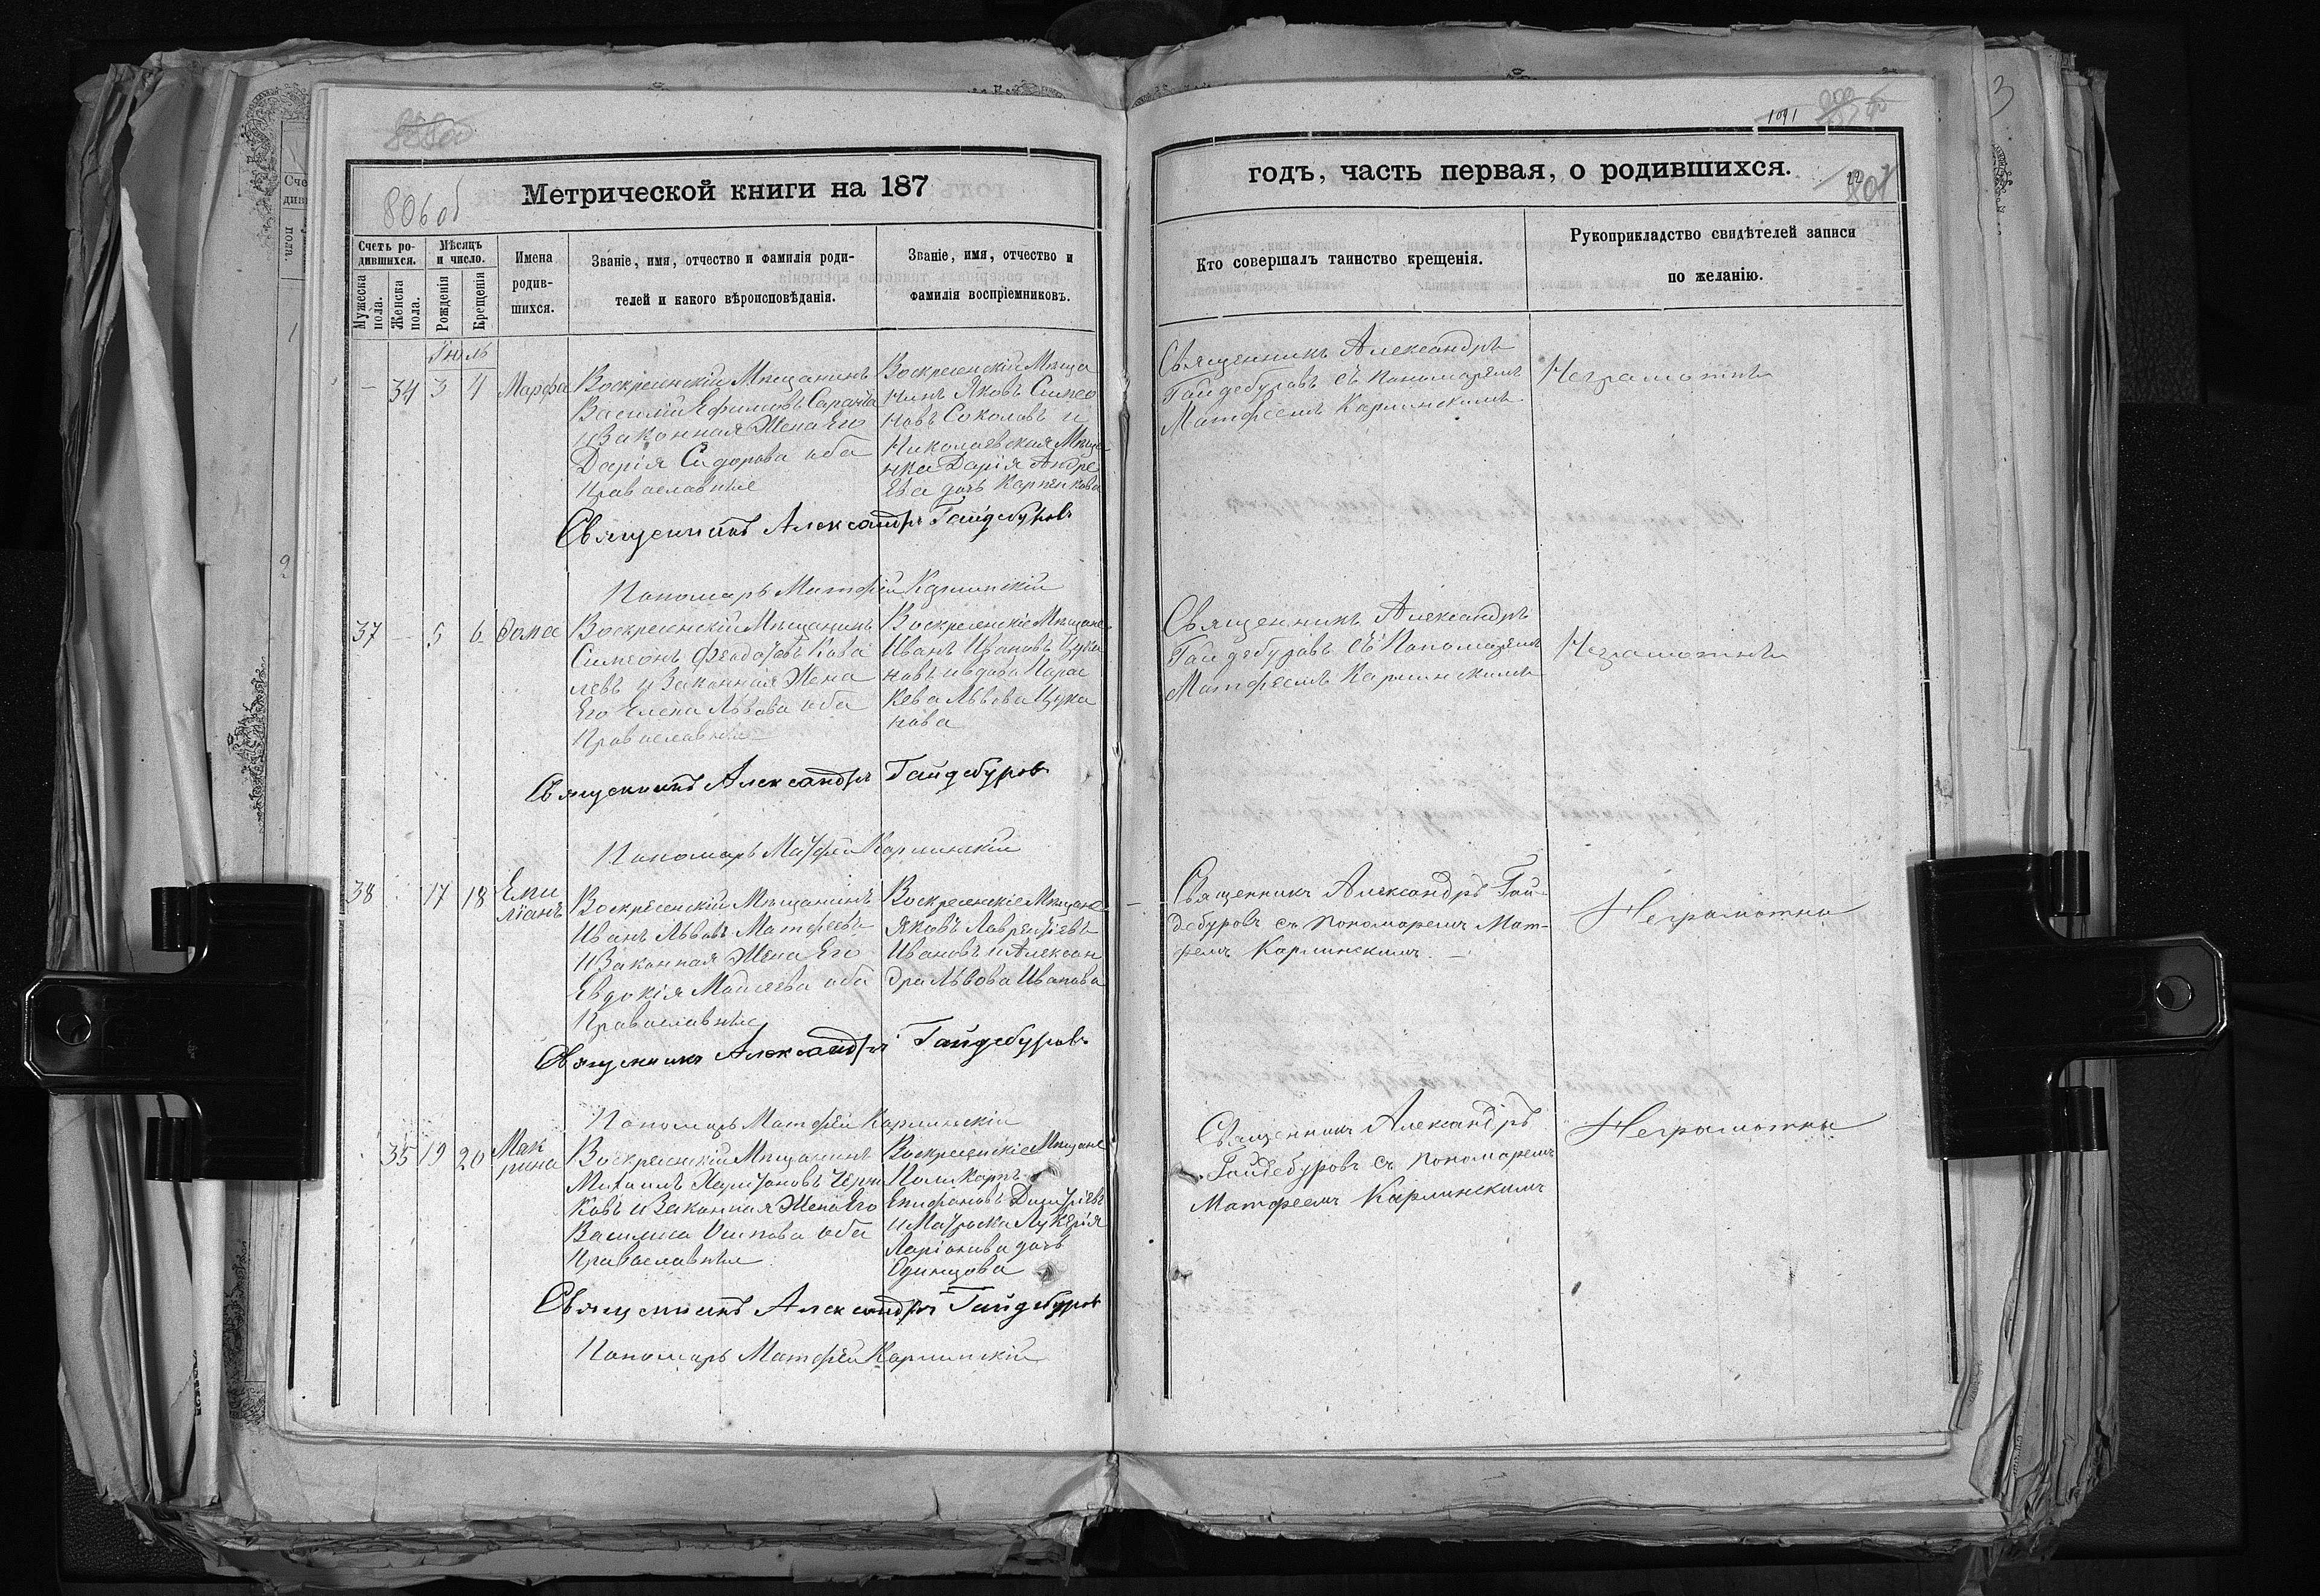 806 об
Метрической книги на 187
Счетъ ро-
дившихся.
Мѣсяцъ
и число.
Мужеска
пола.
Женска
пола.
Рожденія
Крещенія
Имена
родив-
шихся.
Званіе, имя, отчество и фамилія роди-
телей и какого вѣроисповѣданія.
Званіе, имя, отчество и
фамилія воспріемниковъ.
Іюль
— 34 3 4 Марфа
Воскресенскій Мѣщанинъ
Василій Ефимовъ
и Законная Жена Его
Дарія Сидорова оба
Православные
Воскресенскій Мѣща
нинъ Яковъ Симео
новъ Соколовъ и
Николаевская Мѣща
нка Дарія Андре
ева дочь Карпенкова
Священникъ Александръ Гайдебуровъ
Пономарь Матфій Карлинскій
37 — 5 6 Фома
Воскресенскій Мѣщанинъ
Симеонъ Феодотовъ Кова
левъ и Законная Жена
Его Елена Львова оба
Православные
Воскресенскіе Мѣщане
Иванъ Ивановъ Цука
новъ и вдова Парас
кева Львова Цука
нова
Священникъ Александръ Гайдебуровъ
Пономарь Матфій Карлинскій
38 17 18 Еми
ліанъ
Воскресенскій Мѣщанинъ
Иванъ Львовъ Матфеевъ
и Законная Жена Его
Евдокія Моисеева оба
Православные
Воскресенскіе Мѣщане
Яковъ Лаврентіевъ
Ивановъ и Алексан
дра Львова Иванова
Священникъ Александръ Гайдебуровъ
Пономарь Матфій Карлинскій
35 19 20 Мак
рина
Воскресенскій Мѣщанинъ
Михаилъ Харитоновъ Черт
ковъ и Законная Жена Его
Василиса Осипова оба
Православные
Воскресенскіе Мѣщане
Поликарпъ
Епифановъ
и Матроска Лукерія
Ларіонова дочь
Одинцова
Священникъ Александръ Гайдебуровъ
Пономарь Матфій Карлинскій
1091
годъ, часть первая, о родившихся.
22
807
Кто совершалъ таинство крещенія.
Рукоприкладство свидѣтелей записи
по желанію.
Священникъ Александръ
Гайдебуровъ съ Пономаремъ
Матфеемъ Карлинскимъ
Неграмотны
Священникъ Александръ
Гайдебуровъ съ Пономаремъ
Матфеемъ Карлинскимъ
Неграмотны
Священникъ Александръ Гай-
дебуровъ съ Пономаремъ Мат-
феемъ Карлинскимъ. —
Неграмотны
Священникъ Александръ
Гайдебуровъ съ Пономаремъ
Матфеемъ Карлинскимъ
Неграмотны